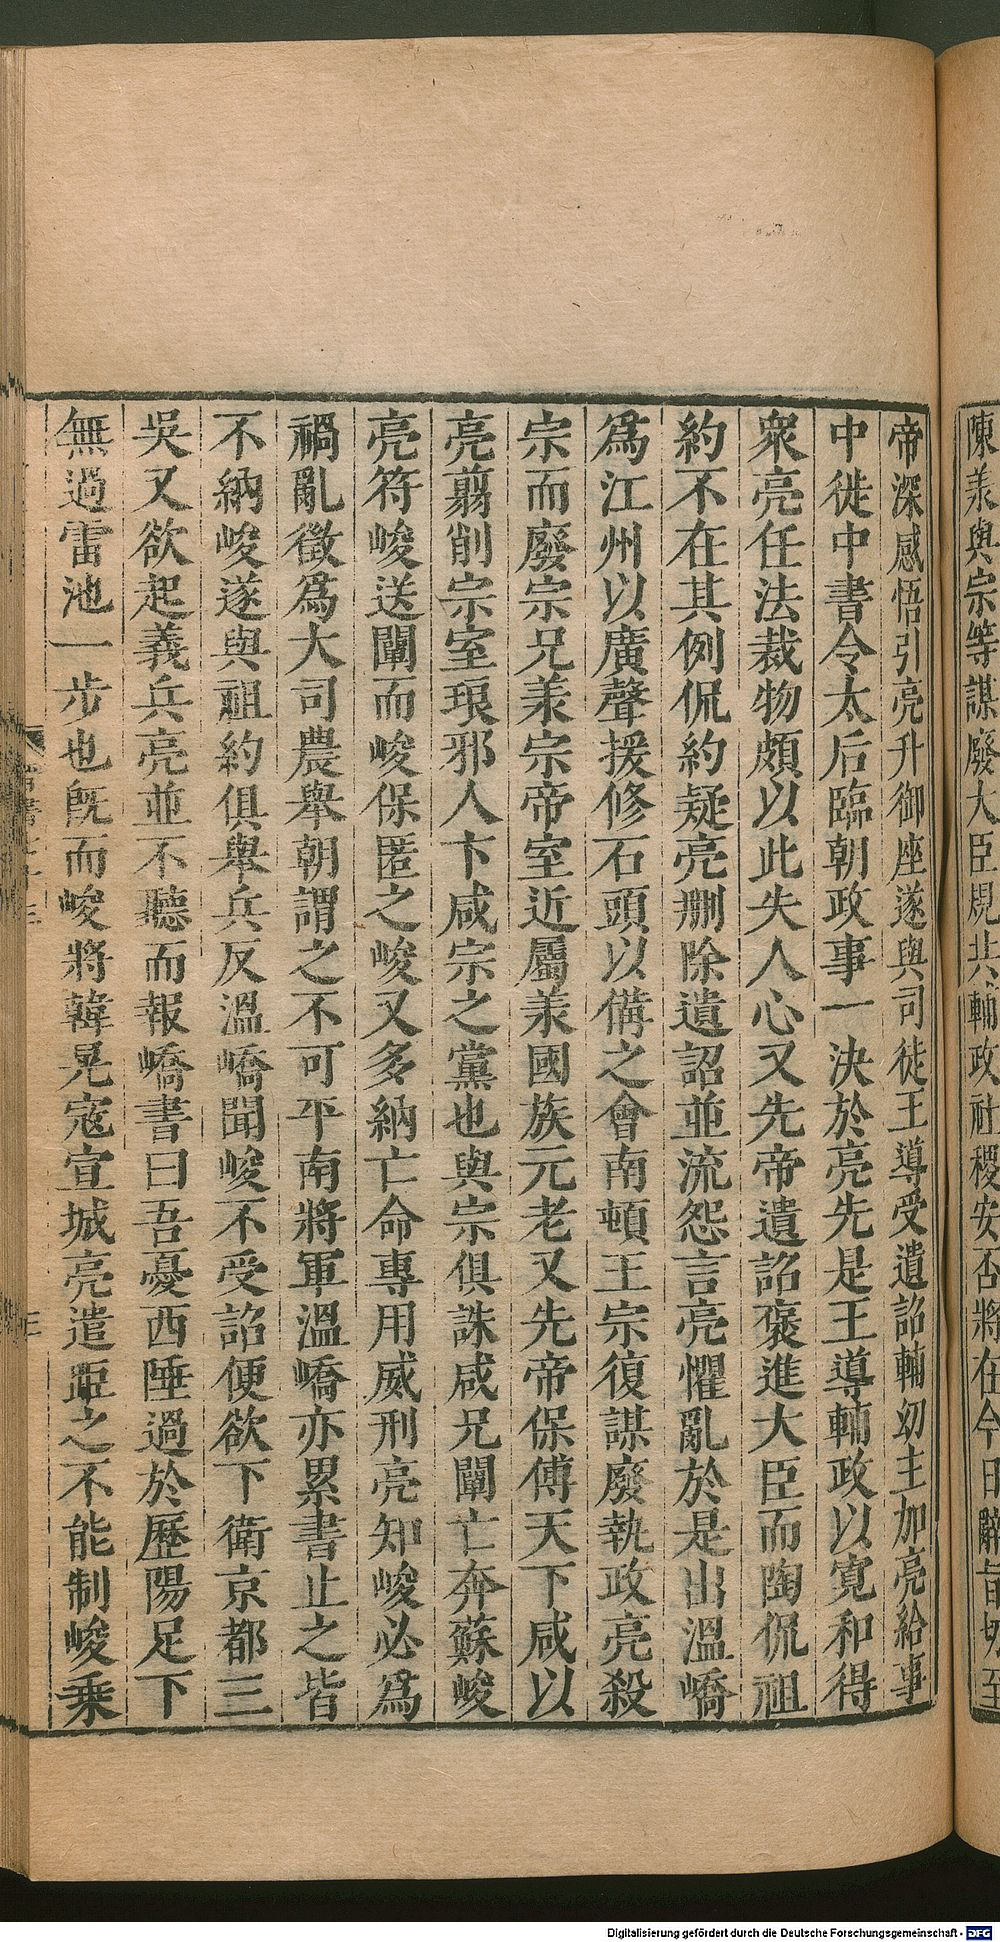 陳羕與宗等謀廢大臣規共輔政社稷安否將在今日辭旨切至
帝深感悟引亮升御座遂與司徒王導受遺詔輔幼主加亮給事
中徙中書令太后臨朝政事一決於亮先是王導輔政以寬和得
衆亮任法裁物頗以此失人心又先帝遺詔褒進大臣而陶侃祖
約不在其例侃約疑亮刪除遺詔並流怨言亮懼亂於是出溫嶠
爲江州以廣聲援修石頭以備之會南頓王宗復謀廢執政亮殺
宗而廢宗兄羕宗帝室近屬羕國族元老又先帝保傅天下咸以
亮翦削宗室琅邪人卞咸宗之黨也與宗俱誅咸兄闡亡奔蘇峻
亮符峻送闡而峻保匿之峻又多納亡命專用威刑亮知峻必爲
禍亂徵爲大司農舉朝謂之不可平南將軍溫嶠亦累書止之皆
不納峻遂與祖約俱舉兵反溫嶠聞峻不受詔便欲下衛京都三
吳又欲起義兵亮並不聽而報嶠書曰吾憂西陲過於歷陽足下
無過雷池一步也旣而峻將韓晃寇宣城亮遣距之不能制峻乘
Digitalisierung gefördert durch die Deutsche Forschungsgemeinschaft - DFG